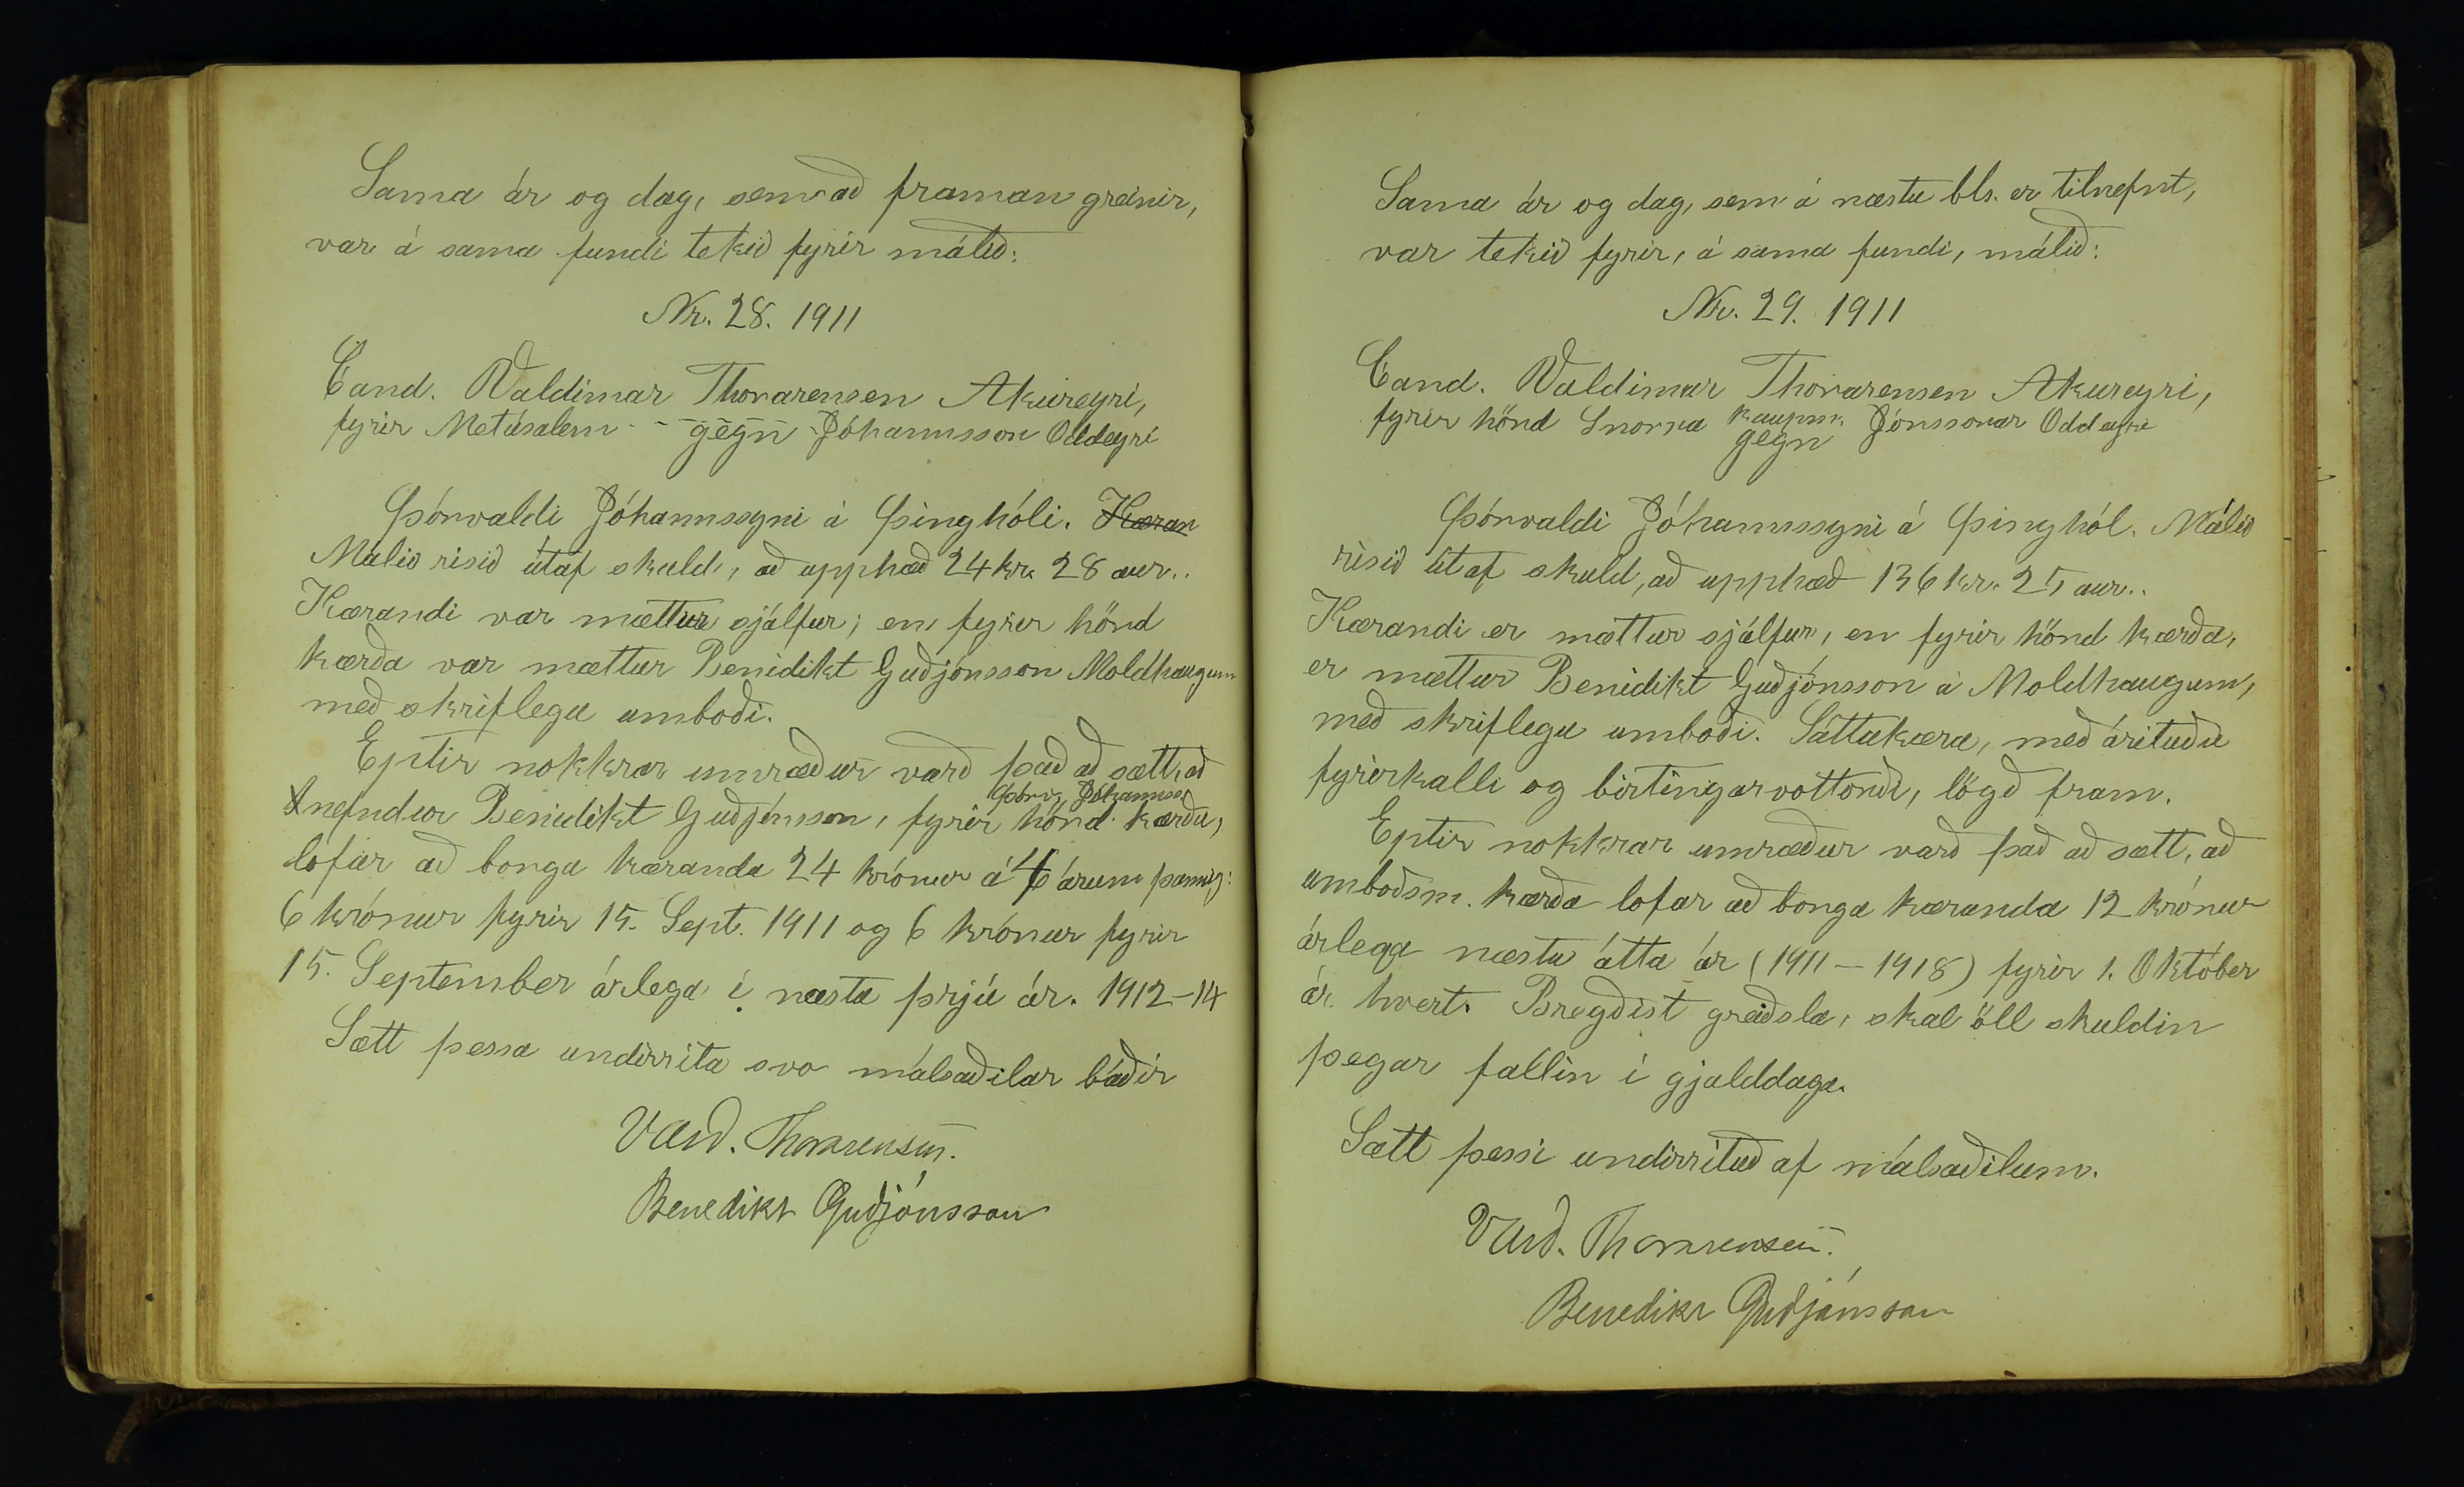 Sama ár og dag, sem að framan greinir,
var á sama fundi tekið fyrir málið:
Nr. 28. 1911
Cand. Valdimar Thorarensen Akureyri,
fyrir Metúsalem - - gegn - Jóhannsson Oddeyri
Þórvaldi Jóhannssyni á Þinghóli. Kæran
Málið risið útaf skuld, að upphæð 24 kr. 28 aur..
Kærandi var mættur sjálfur; en fyrir hönd
kærða var mættur Benidikt Guðjónsson Moldhaugum
með skriflegu umboði.
Eptir nokkrar umræður varð það að sætt, að
Þórv. Jóhannss.
nefndur Benidikt Guðjónsson, fyrir hönd kærða,
lofar að borga kæranda 24 krónur á 4 árum þannig:
6 krónur fyrir 15. Sept. 1911 og 6 krónur fyrir
15. September árlega í næstu þrjú ár. 1912-14
Sætt þessa undirrita svo málsaðilar báðir
Vald. Thorarensen.
Benedikt Guðjónsson
Sama ár og dag, sem á næstu bls. er tilnefnt,
var tekið fyrir, á sama fundi, málið:
Nr. 29. 1911
Cand. Valdimar Thorarensen Akureyri,
fyrir hönd Snorra kaupm. Jónssonar Oddeyri
gegn
Þórvaldi Jóhannssyni á Þinghól. Málið
risið út af skuld, að upphæð 136 kr. 25 aur..
Kærandi er mættur sjálfur, en fyrir hönd kærða,
er mættur Benidikt Guðjónsson á Moldhaugum,
með skriflegu umboði. Sáttakæra, með árituðu
fyrirkalli og birtingarvottorði, lögð fram.
Eptir nokkrar umræður varð það að sætt, að
umboðsm. kærða lofar að borga kæranda 12 krónur
árlega næstu átta ár (1911 - 1918) fyrir 1. Október
ár hvert. Bregðist greiðsla, skal öll skuldin
þegar fallin í gjalddaga.
Sætt þessi undirrituð af málsaðilum.
Vald. Thorarensen.
Benedikt Guðjónsson